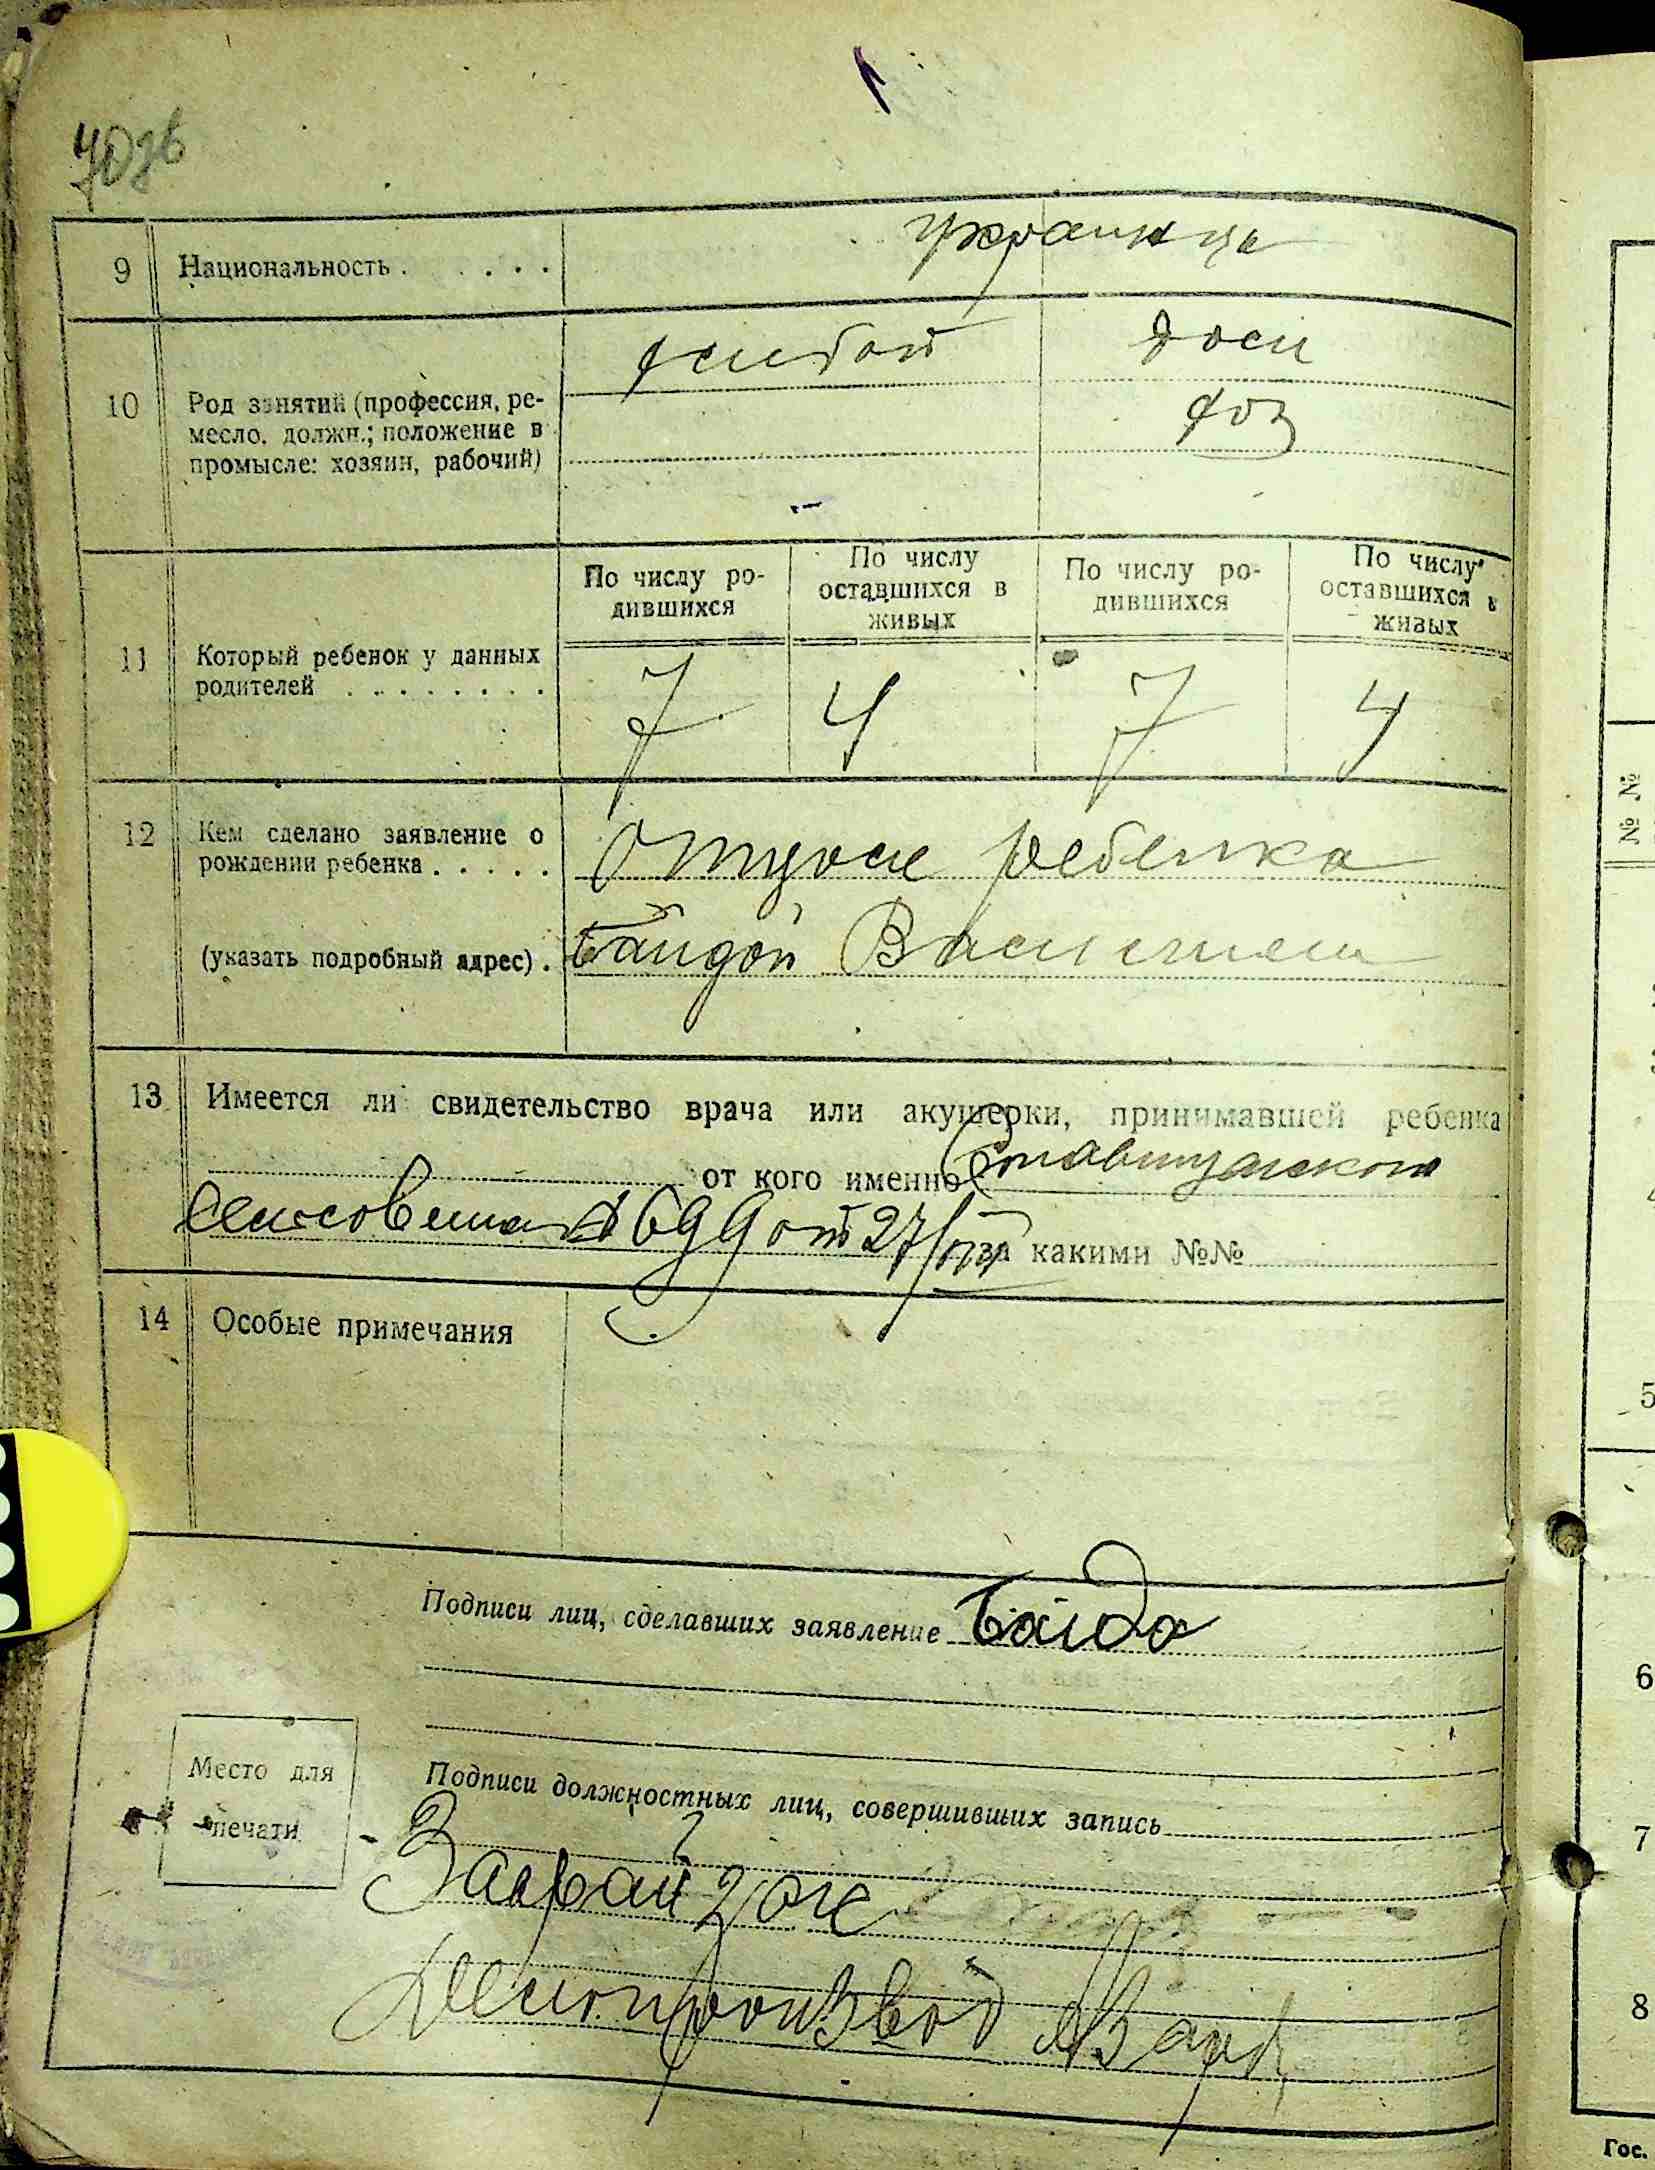 70зв
9 Национальность . . . . . украинцы
10 Род занятий (профессия, ре-
месло, должн.; положение в
промысле: хозяин, рабочий)
дом
хоз
11 Который ребенок у данных
родителей . . . . . . . .
По числу ро-
дившихся
По числу
оставшихся в
живых
По числу ро-
дившихся
По числу
оставшихся в
живых
7 4 7 4
12 Кем сделано заявление о
рождении ребенка . . . . . Отцом ребенка
(указать подробный адрес) . Байдой Василием
13 Имеется ли свидетельство врача или акушерки, принимавшей ребенка
от кого именно
сельсовета № 699 от 27/ за какими №№
14 Особые примечания
Подписи лиц, сделавших заявление Байда
Место для
печати
Подписи должностных лиц, совершивших запись
Заврайзагс
Делопроизвод
№ №
5
6
7
8
Гос.